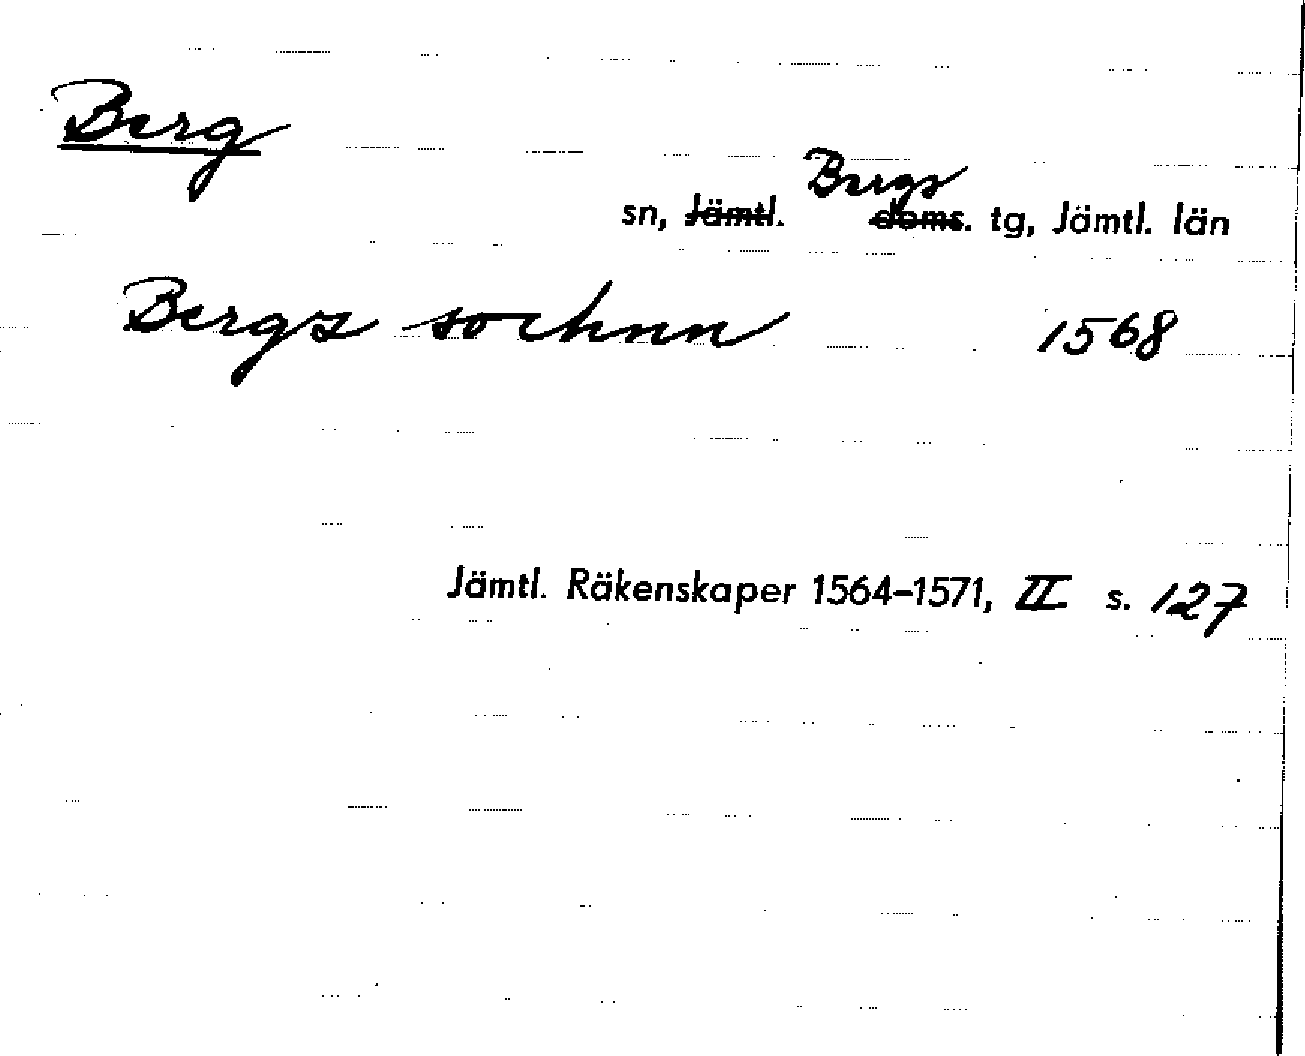 Berg
sn, Jämtl. Bergs doms. tg, Jämtl. län
Bergs sochnn 1568
Jämtl. Räkenskaper 1564-1571, II s. 127